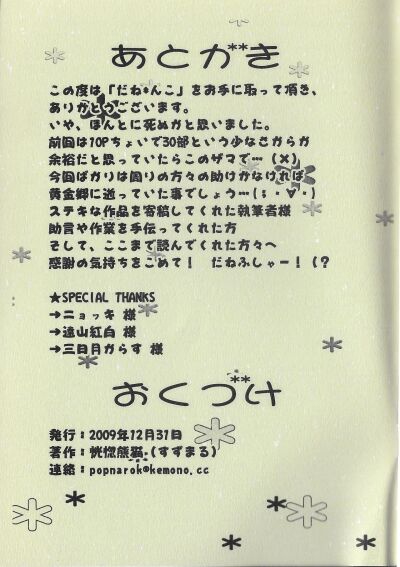 あとがき
この度は「だね*んこ」をお手に取って頂き、
ありがとうございます。
いや、ほんとに死ぬかと思いました。
前回は10Pちょいで30部という少なさからか
余裕だと思っていたらこのザマで…(×)
今回ばかりは周りの方々の助けがなければ
黄金郷に逝っていた事でしょう…(；・∀・)
ステキな作品を寄稿してくれた執筆者様
助言や作業を手伝ってくれた方
そして、ここまで読んでくれた方々へ
感謝の気持ちをこめて！ だねふしゃー！(？
★SPECIAL THANKS
→ニョッキ 様
→遠山紅白 様
→三日月からす 様
おくづけ
発行：2009年12月31日
著作：恍惚熊猫 (すずまる)
連絡：popnarok@kemono.cc